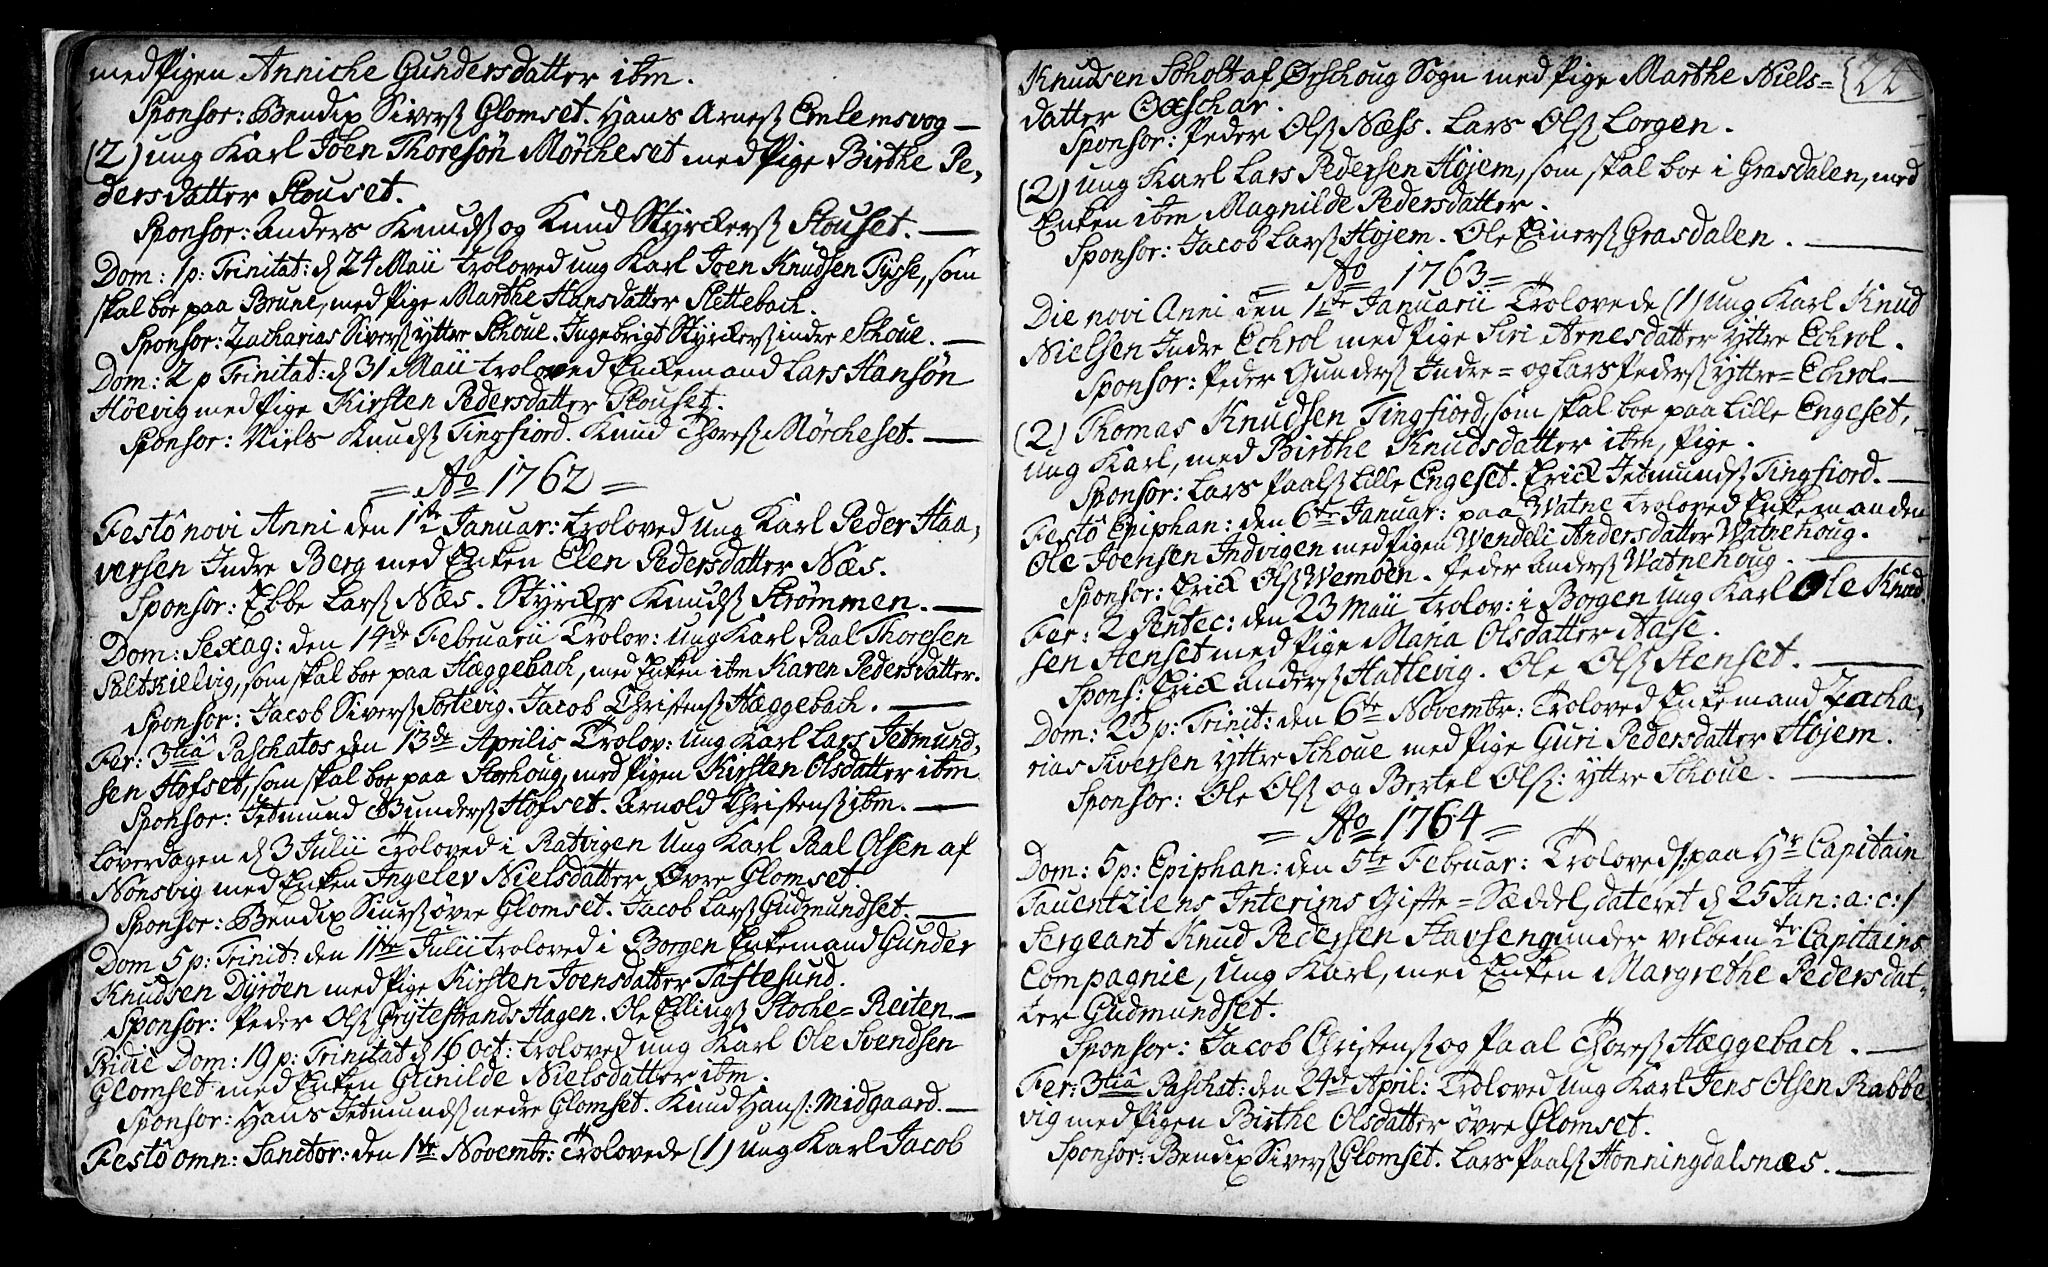 med Pigen Anniche Gundersdatter ibm.
Sponsor: Bendix Siversß Glomset. Hans Arnesß Emlemsvog —
(2) ung Karl Joen Thoresøn Mörcheset med Pige Birthe Pe-
dersdatter Skouset.
Sponsor: Anders Knudsß og Knud Styrckersß Skouset. —
Dom: 1 p: Trinitat: d 24 Maii troloved ung Karl Joen Knudsen Tysse, som
skal boe paa Brune, med Pige Marthe Hansdatter Slettebach.
Sponsor: Zacharias Siversß yttre Schoue. Ingebrigt Styrckersß indre Schoue. —
Dom: 2 p Trinitat: d 31 Maii troloved Enckemand Lars Hansøn
Höevig med Pige Kirsten Pedersdatter Skouset.
Sponsor: Niels Knudsß Tingfiord. Knud Thoresß Mörcheset. —
= Ao 1762 =
Festô novi Anni den 1ste Januar: troloved ung Karl Peder Haa-
versen Indre Berg med Enken Elen Pedersdatter Næs.
Sponsor: Ebbe Larsß Næs. Styrcker Knudsß Strömmen. —
Dom: Sexag: den 14de Februarii Trolov: ung Karl Paal Thoresen
Saltkielvig, som skal boe paa Hæggebach, med Enken ibm Karen Pedersdatter.
Sponsor: Jacob Siversß Sortevig. Jacob Christensß Hæggebach. —
Fer: 3tiâ Paschatos den 13de Aprilis Trolov: ung Karl Lars Jetmund-
sen Hofset, som skal boe paa Storhoug, med Pigen Kirsten Olsdatter ibm
Sponsor: Jetmund Gundersß Hofset. Arnold Christensß ibm. —
Löverdagen d 3 Julii Troloved i Ratvigen Ung Karl Paal Olsen af
Nonsvig med Enken Ingelev Nielsdatter Øvre Glomset.
Sponsor: Bendix Siursß övre Glomset. Jacob Larsß Gudmundset. —
Dom 5 p: Trinit: den 11te Julii troloved i Borgen Enkemand Gunder
Knudsen Dyröen med Pige Kirsten Joensdatter Taftesund.
Sponsor: Peder Olsß Grytestrands Hagen. Ole Ellingsß Stoche=Reiten —
Pridie Dom: 19 p: Trinitat d 16 Oct: troloved ung Karl Ole Svendsen
Glomset med Enken Gunilde Nielsdatter ibm.
Sponsor: Hans Jetmundsß nedre Glomset. Knud Hansß: Midgaard. —
Festô omn: Sanctor: den 1ste Novembr: Trolovede (1) ung Karl Jacob
24
Knudsen Soholt af Ørschoug Sogn med Pige Marthe Niels=
datter Oxschar.
Sponsor: Peder Olsß Næss. Lars Olsß Lorgen.
(2) ung Karl Lars Pedersen Höjem, som skal boe i Grasdalen, med
Enken ibm Magnilde Pedersdatter.
Sponsor: Jacob Larsß Höjem. Ole Einersß Grasdalen. —
= Ao 1763 =
Die novi Anni den 1ste Januarii Trolovede (1) ung Karl Knud
Nielsen Indre Echrol med Pige Siri Arnesdatter yttre Echrol.
Sponsor: Peder Gundersß Indre= og Lars Pedersß yttre=Echrol. —
(2) Thomas Knudsen Tingfiord, som skal boe paa Lille Engeset,
ung Karl, med Birthe Knudsdatter ibm, Pige.
Sponsor: Lars Paalsß Lille Engeset. Erick Jetmundsß Tingfiord. —
Festô Epiphan: den 6te Januar: paa Watne troloved Enkemanden
Ole Joensen Indvigen med Pigen Wendele Andersdatter Watnehoug.
Sponsor: Erick Olsß Wemöen. Peder Andersß Watnehoug. —
Fer: 2 Pentec: den 23 Maii trolov: i Borgen ung Karl Ole Knud-
sen Stenset med Pige Maria Olsdatter Aase.
Spons: Erick Andersß Hatlevig. Ole Olsß Stenset. —
Dom: 23 p: Trinit: den 6te Novembr: Troloved Enkemand Zacha-
rias Siversen yttre Schoue med Pige Guri Pedersdatter Höjem.
Sponsor: Ole Olsß og Bertel Olsß: yttre Schoue. —
= Ao 1764 =
Dom: 5 p: Epiphan: den 5te Februar: Troloved /: paa Hr Capitain
Tauentziens Interims Gifte=Sæddel, dateret d 25 Jan: a: c: /
Sergeant Knud Pedersen Stavseng under velbem.te Capitains
Compagnie, Ung Karl, med Enken Margrethe Pedersdat-
ter Gudmundset.
Sponsor: Jacob Christensß og Paal Thoresß Hæggebach. —
Fer: 3tiâ Paschat: den 24de April: Troloved ung Karl Jens Olsen Rabbe
vig med Pigen Birthe Olsdatter övre Glomset.
Sponsor: Bendix Siversß Glomset. Lars Paalsß Honningdalsnæs. —